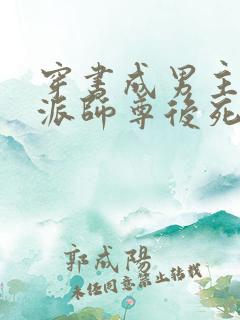 穿書成男主
派師尊後死
郭成陽
未经同意禁止转载